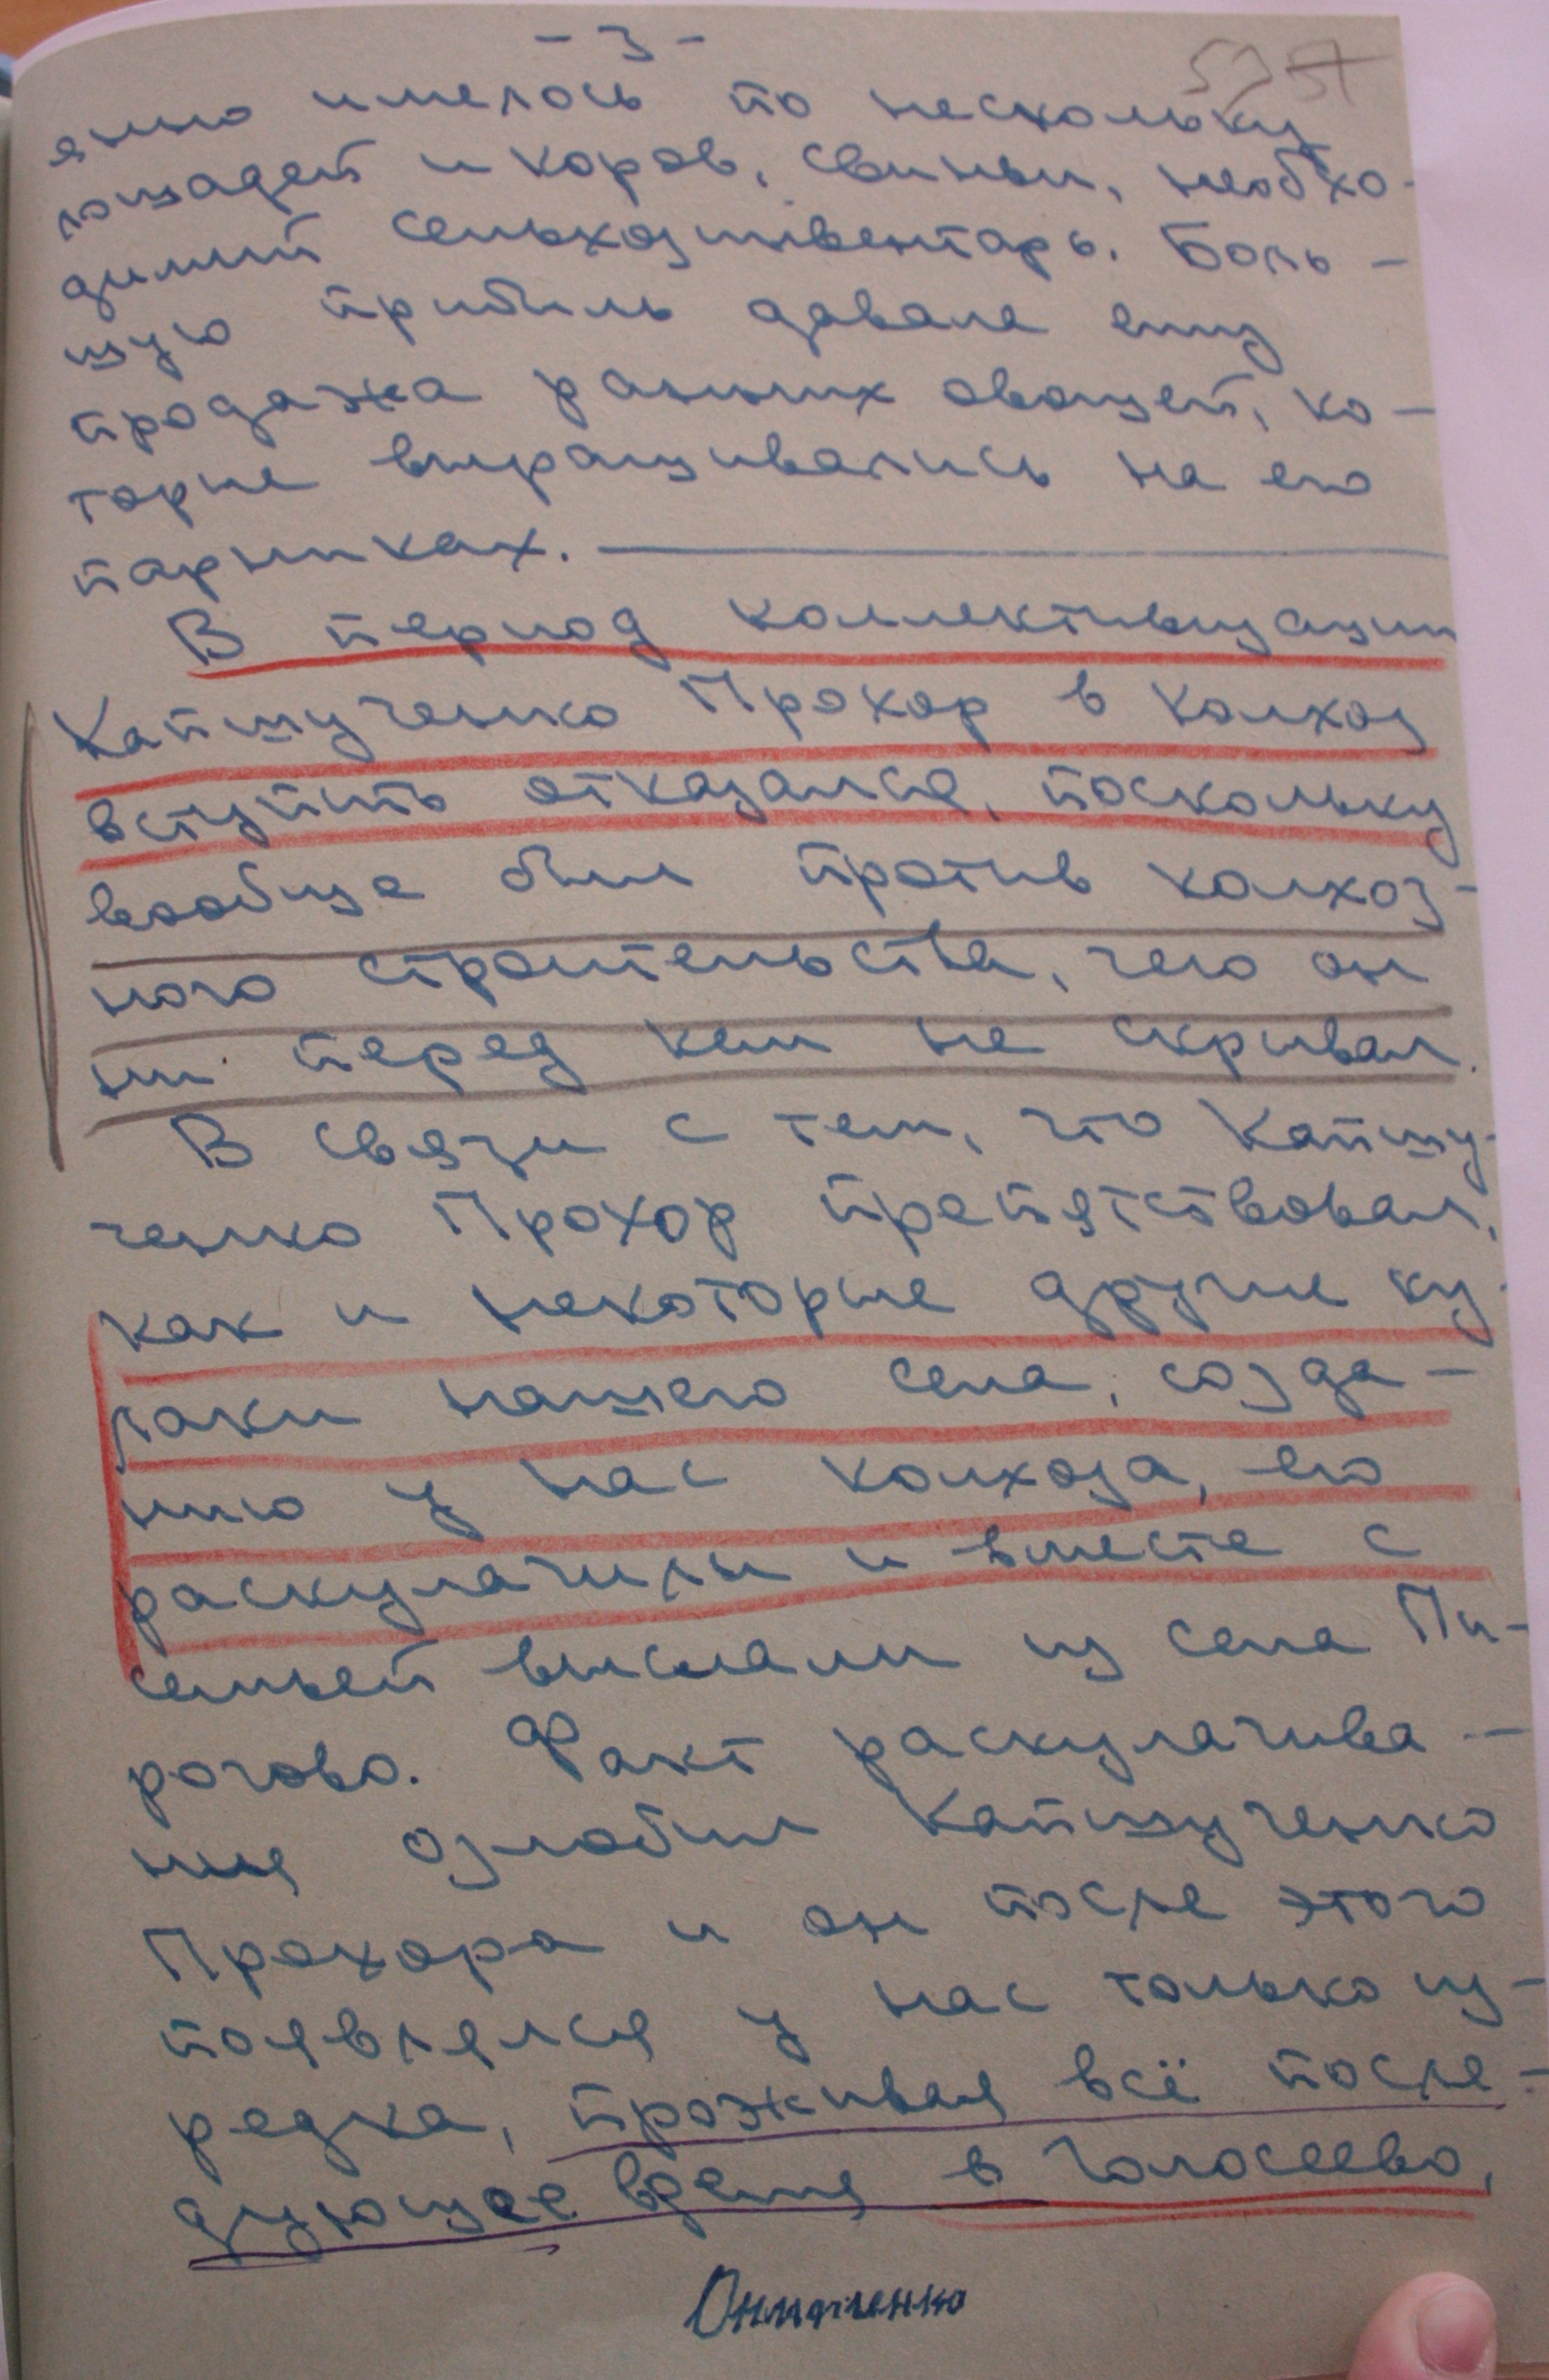 - 3 -
янно имелось по нескольку
лошадей и коров, свиньи, необхо-
димый сельхозинвентарь. Боль-
шую прибыль давала ему
продажа ранних овощей, ко-
торые выращивались на его
парниках.
В период коллективизации
Капшученко Прохор в колхоз
вступить отказался, поскольку
вообще был против колхоз-
ного строительства, чего он
ни перед кем не скрывал.
В связи с тем, что Капшу-
ченко Прохор препятствовал,
как и некоторые другие ку-
лаки нашего села, созда-
нию у нас колхоза, его
раскулачили и вместе с
семьей выслали из села Пи-
рогово. Факт раскулачива-
ния озлобил Капшученко
Прохора и он после этого
появлялся у нас только из-
редка, проживая всё после-
дующее время в Голосеево,